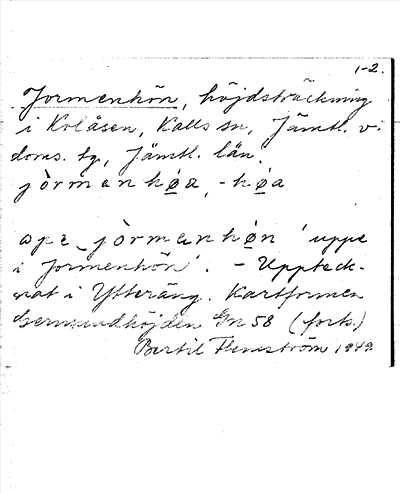 1-2.
Jormenhön, höjdsträckning
i Kolåsen, Kalls sn, Jämtl. v:
doms. tg, Jämtl. län.
jòrmanhø̄a, -hø̄a
ɔpɛ jòrmanhøn 'uppe
i Jormenhön'. - Uppteck-
nat i Ytteräng. Kartformen
Germundhöjden Gn 58 (forts.)
Bertil Flemström 1949.